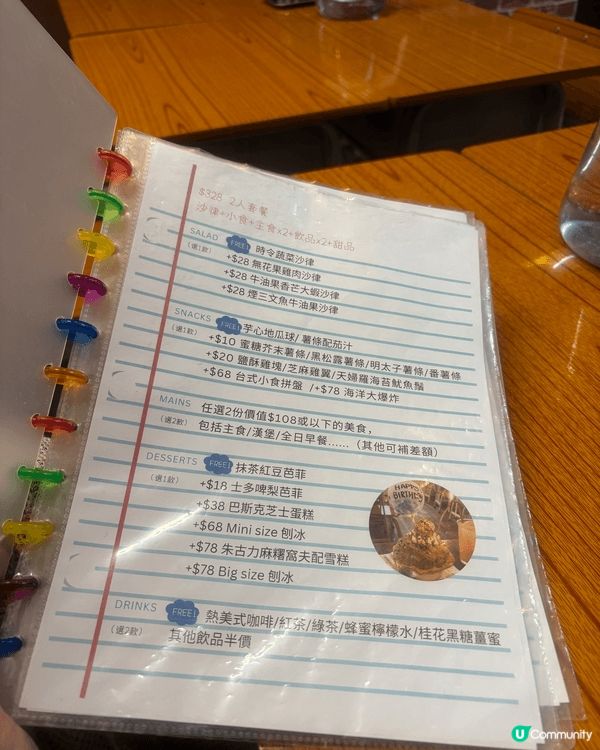 $328 2人套餐
沙律+小食+主食x2+飲品x2+甜品
SALAD FREE! 時令蔬菜沙律
(選1款) +$28 無花果雞肉沙律
+$28 牛油果香芒大蝦沙律
+$28 煙三文魚牛油果沙律
SNACKS FREE! 芋心地瓜球/ 薯條配茄汁
(選1款) +$10 蜜糖芥末薯條/黑松露薯條/明太子薯條/番薯條
+$20 鹽酥雞塊/芝麻雞翼/天婦羅海苔魷魚鬚
+$68 台式小食拼盤 /+$78 海洋大爆炸
MAINS 任選2份價值$108或以下的美食，
(選2款) 包括主食/漢堡/全日早餐……（其他可補差額）
DESSERTS FREE! 抹茶紅豆芭菲
(選1款) +$18 士多啤梨芭菲
+$38 巴斯克芝士蛋糕
+$68 Mini size 刨冰
+$78 朱古力麻糬窩夫配雪糕
+$78 Big size 刨冰
HAPPY
BIRTHDAY
DRINKS FREE! 熱美式咖啡/紅茶/綠茶/蜂蜜檸檬水/桂花黑糖薑蜜
(選2款) 其他飲品半價
U Community